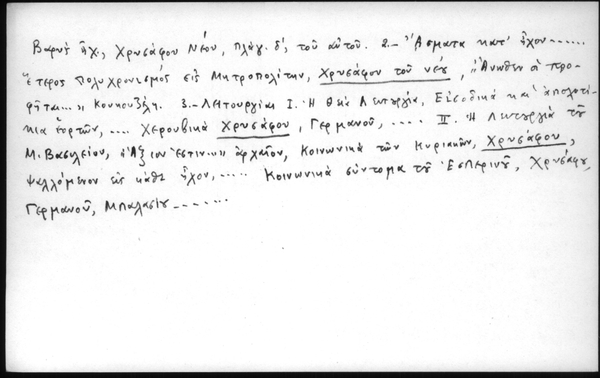 Βαρὺς ἦχ., Χρυσάφου Νέου, πλάγ. δ', τοῦ αὐτοῦ. 2.– Ἄσματα κατ' ἦχον......
ἕτερος Πολυχρονισμός εἰς Μητροπολίτην, Χρυσάφου τοῦ νέου, "Ἄνωθεν οἱ προ-
φῆται..." Κουκουζέλη. 3.– Λειτουργίαι Ι. Ἡ Θεία Λειτουργία, Εἰσοδικά καὶ ἀπολυτί-
κια ἑορτῶν, .... Χερουβικά Χρυσάφου, Γερμανοῦ, .... ΙΙ. Ἡ Λειτουργία τοῦ
Μ. Βασιλείου, «Ἄξιον ἐστιν...» ἀρχαῖον, Κοινωνικά τῶν Κυριακῶν, Χρυσάφου,
ψαλλόμενον εἰς κάθε ἦχον, ..... Κοινωνικά σύντομα τοῦ Ἑσπερινοῦ, Χρυσάφου,
Γερμανοῦ, Μπαλασίου .......